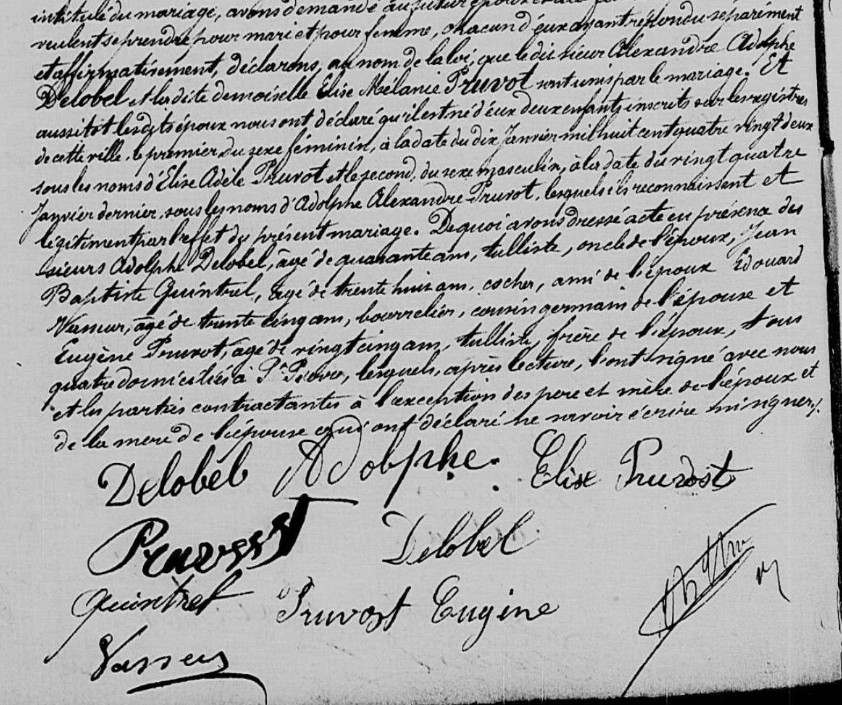 intitulé du mariage, avons demandé au futur époux et à la
veulent se prendre pour mari et pour femme, chacun d'eux ayant répondu séparément
et affirmativement, déclarons, au nom de la loi, que le dit sieur Alexandre Adolphe
Delobel et la dite demoiselle Elise Mélanie Pruvot sont unis par le mariage. Et
aussitôt lesdits époux nous ont déclaré qu'il est né d'eux deux enfants inscrits sur les registres
de cette ville, le premier, du sexe féminin, à la date du dix Janvier mil huit cent quatre vingt deux
sous les noms d'Elise Adèle Pruvot et le second, du sexe masculin, à la date du vingt quatre
Janvier dernier, sous les noms d'Adolphe Alexandre Pruvot, lesquels ils reconnaissent et
légitiment par l'effet du présent mariage. De quoi avons dressé acte en présence des
sieurs Adolphe Delobel, âgé de quarante ans, tulliste, oncle de l'époux, Jean
Baptiste Quintrel, âgé de trente huit ans, cocher, ami de l'époux Edouard
Vasseur, âgé de trente cinq ans, bourrelier, cousin germain de l'épouse et
Eugène Pruvot, âgé de vingt cinq ans, tulliste, frère de l'épouse, tous
quatre domiciliés à St Pierre, lesquels, après lecture, l'ont signé avec nous
et les parties contractantes à l'exception des pere et mère de l'époux et
de la mère de l'épouse qui ont déclaré ne savoir écrire ni signer.
Delobel Adolphe. Elise Pruvost
Pruvost Delobel
Quintrel Pruvost Eugène
Vasseur